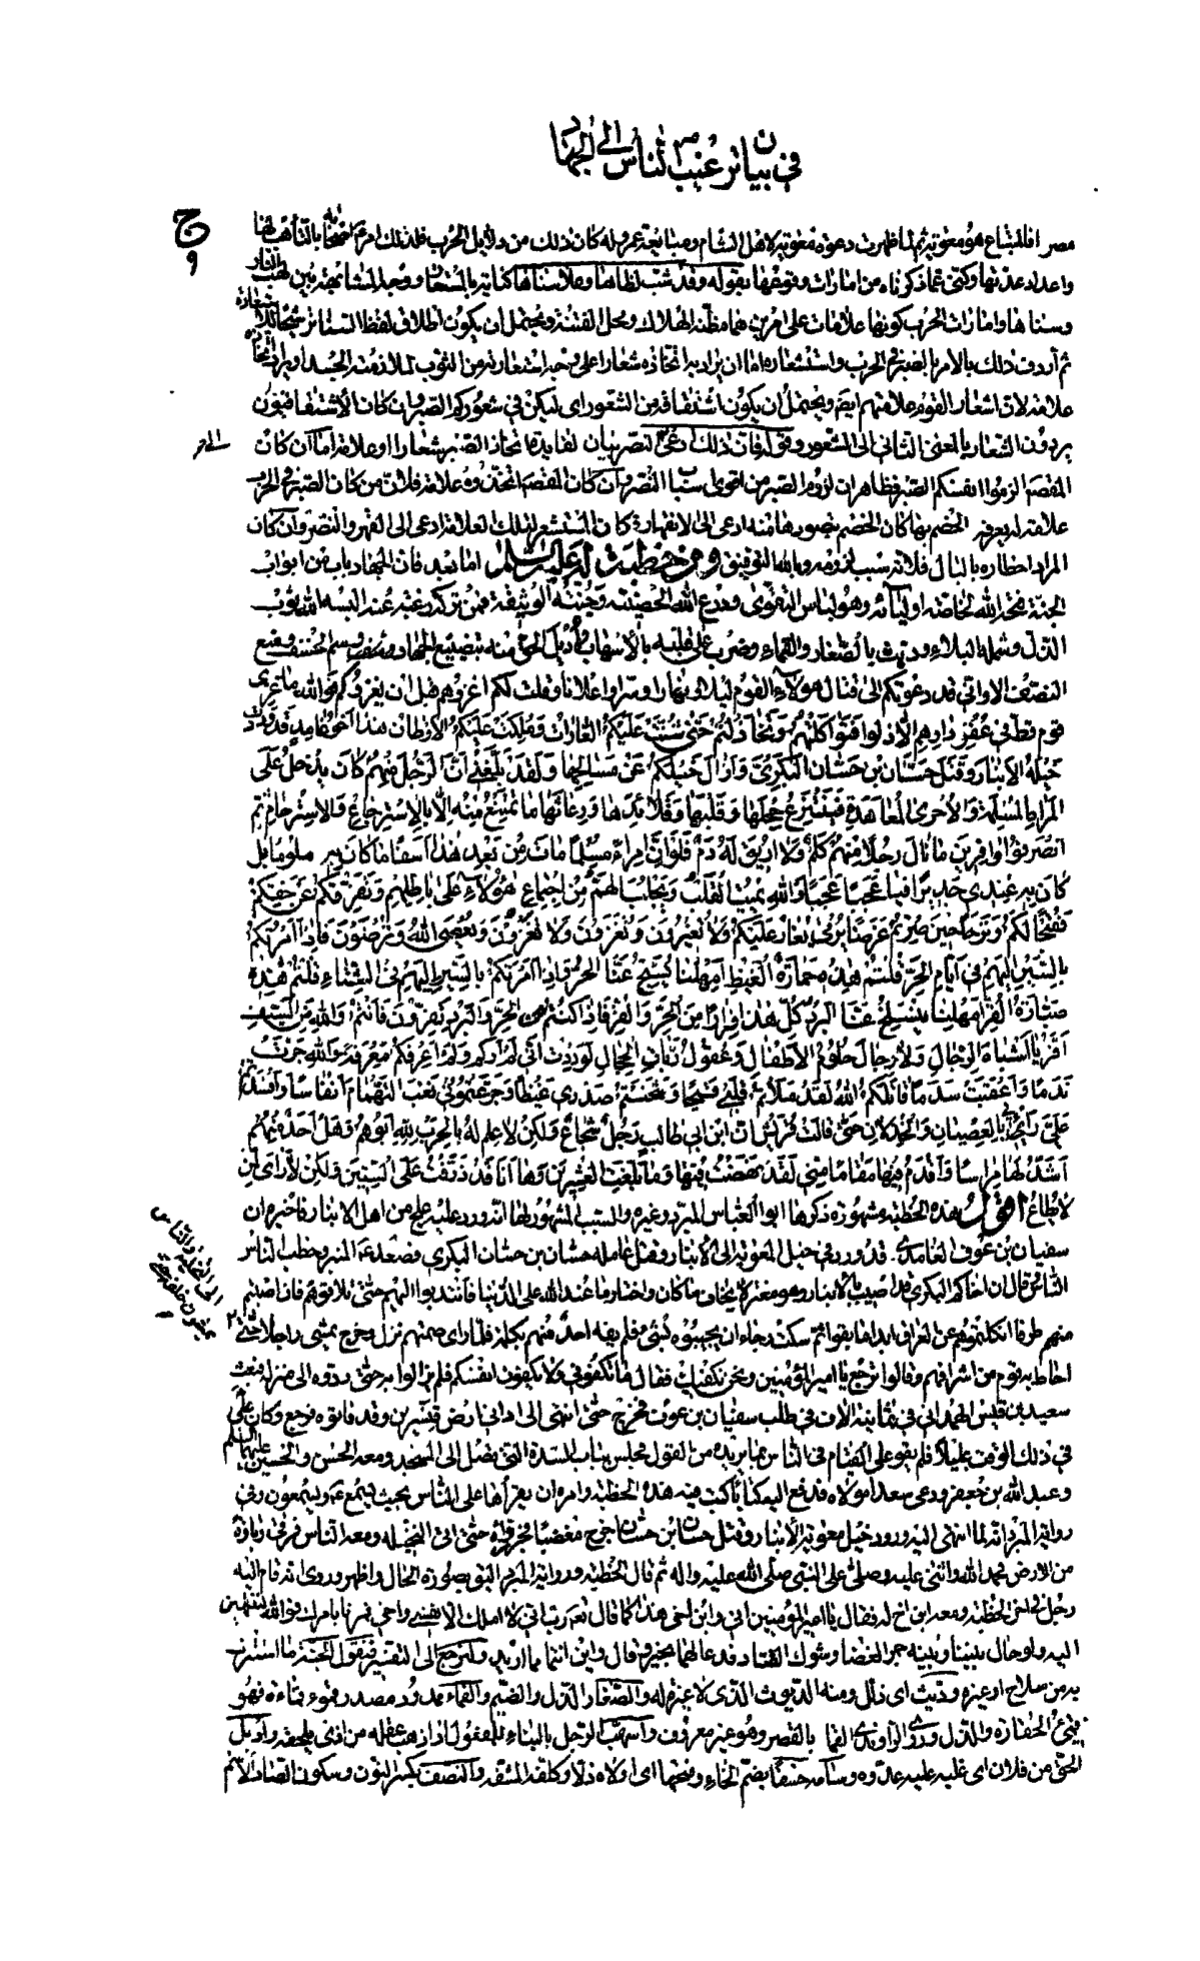 في بيان ترغيب الناس الى الجهاد
ج ٩
مصر فالمبتاع هو معوية ثم لما ظهرت دعوة معوية لاهل الشام ومبايعة عمرو له كان ذلك من دلايل الحرب فلذلك امر اصحابه بالتأهب لها
واعداد عدتها وكنى عما ذكرناه من امارات وقوعها بقوله وقد شب لظاها وعلا سناها كناية بالاستعارة ووجه المشابهة بين لهب النار
وسناها وامارات الحرب كونها علامات على امرين هما مظنة الهلاك ومحل الفتنة ويحتمل ان يكون اطلاق لفظ السنا ترشيحا للاستعارة
ثم أردف ذلك بالامر بالصبر في الحرب واستشعاره اما ان يراد به اتخاذه شعارا على وجه استعارته من الثوب لملازمته الجسد او يراد اتخاذه
علامة لان شعار القوم علامتهم ايضا ويحتمل أن يكون اشتقاقه من الشعور اى ليكن في شعوركم الصبر وان كان الاشتقاقيون
يردون الشعار بالمعنى الثاني الى الشعور وقوله فان ذلك ادعى الى النصر بيان لفايدة اتخاذ الصبر شعارا او علامة اما ان كان
المقصد الزموا انفسكم الصبر فظاهر ان لزوم الصبر من اقوى اسباب النصر وان كان المقصد اتخذوه علامة فلان من كان الصبر في الحرب
علامة له يعرفه الخصم بها كان الخصم بتصورها منه ادعى الى الانقهار فكان المستشعر لتلك العلامة ادعى الى القهر والنصر وان كان
المراد اخطاره بالبال فلانه سبب لزومه وبالله التوفيق ومن خطبة له عليه السلام اما بعد فان الجهاد باب من ابواب
الجنة فتحه الله لخاصة اوليائه وهو لباس التقوى ودرع الله الحصينة وجنته الوثيقة فمن تركه رغبة عنه البسه الله ثوب
الذل وشملة البلاء وديث بالصغار والقماء وضرب على قلبه بالاسهاب واديل الحق منه بتضييع الجهاد وسيم الخسف ومنع
النصف الا واني قد دعوتكم الى قتال هؤلاء القوم ليلا ونهارا وسرا واعلانا وقلت لكم اغزوهم قبل ان يغزوكم فوالله ما غزى
قوم قط في عقر دارهم الا ذلوا فتواكلتم وتخاذلتم حتى شنت عليكم الغارات وملكت عليكم الاوطان هذا اخو غامد قد وردت
خيله الانبار وقتل حسان بن حسان البكري وازال خيلكم عن مسالحها ولقد بلغني ان الرجل منهم كان يدخل على
المرأة المسلمة والاخرى المعاهدة فينتزع حجلها وقلبها وقلائدها ورعاثها ما تمتنع منه الا بالاسترجاع والاسترحام ثم
انصرفوا وافرين ما نال رجلا منهم كلم ولا اريق له دم فلو ان امرءا مسلما مات من بعد هذا اسفا ما كان به ملوما بل
كان به عندي جديرا فيا عجبا عجبا والله يميت القلب ويجلب الهم من اجتماع هؤلاء على باطلهم وتفرقكم عن حقكم
فقبحا لكم وترحا حين صرتم غرضا يرمى يغار عليكم ولا تغيرون وتغزون ولا تغزون ويعصى الله وترضون فاذا امرتكم
بالسير اليهم في ايام الحر قلتم هذه حمارة القيظ امهلنا يسبخ عنا الحر واذا امرتكم بالسير اليهم في الشتاء قلتم هذه
صبارة القر امهلنا ينسلخ عنا البرد كل هذا فرارا من الحر والقر فاذا كنتم من الحر والبرد تفرون فانتم والله من السيف
افر يا اشباه الرجال ولا رجال حلوم الاطفال وعقول ربات الحجال لوددت اني لم اركم ولم اعرفكم معرفة والله جرت
ندما واعقبت سدما قاتلكم الله لقد ملأتم قلبي قيحا وشحنتم صدري غيظا وجرعتموني نغب التهمام انفاسا وافسدتم
علي رأيي بالعصيان والخذلان حتى قالت قريش ان ابن ابي طالب رجل شجاع ولكن لا علم له بالحرب لله ابوهم وهل احد منهم
اشد لها مراسا واقدم فيها مقاما مني لقد نهضت فيها وما بلغت العشرين وها انا قد ذرفت على الستين ولكن لا رأى لمن
لا يطاع اقول هذه الخطبة مشهورة ذكرها ابو العباس المبرد وغيره والسبب المشهور لها انه ورد عليه علج من اهل الانبار فاخبره ان
سفيان بن عوف الغامدي قد ورد في خيل لمعوية الى الانبار وقتل عامله حسان بن حسان البكري فصعد عليه المنبر وخطب الناس
الناس قال ان اخاكم البكري قد اصيب بالانبار وهو معتز لا يخاف ما كان واختار ما عند الله على الدنيا فانتدبوا اليهم حتى تلاقوهم فان اصبتم
منهم طرفا انكلتموهم عن العراق ابدا ما بقوا ثم سكت رجاء ان يجيبوه بشئ فلم يفه احد منهم بكلمة فلما راى صمتهم نزل وخرج يمشي راجلا حتى
احاط به قوم من اشرافهم وقالوا ترجع يا امير المؤمنين ونحن نكفيك فقال ما تكفوني ولا تكفون انفسكم فلم يزالوا به حتى ردوه الى منزله فبعث
سعيد بن قيس الهمداني في ثمانية الاف في طلب سفيان بن عوف فخرج حتى انتهى الى اداني ارض قنسرين وقد فاتوه فرجع وكان علي
في ذلك الوقت عليلا فلم يقو على القيام في الناس بما يريده من القول فجلس بباب السدة التي تصل الى المسجد ومعه الحسن والحسين عليهما السلم
وعبد الله بن جعفر ودعى سعدا مولاه فدفع اليه كتابا كتب فيه هذه الخطبة وامره ان يقرأها على الناس بحيث يسمع عم ويسمعون وفي
رواية المبرد انه لما انتهى اليه ورود خيل معوية الانبار وقتل حسان ابن حسان خرج مغضبا يجر ثوبه حتى اتى النخيلة ومعه الناس فرقى رباوة
من الارض فحمد الله واثنى عليه وصلى على النبي صلى الله عليه واله ثم قال الخطبة ورواية المبرد اليق بصورة الحال واظهر وروى انه قام اليه
رجل في اخر الخطبة ومعه ابن اخ له فقال يا امير المؤمنين اني وابن اخي هذا كما قال تعالى رب اني لا املك الا نفسي واخي فمرنا بامرك فوالله لننتهين
اليه ولو حال بيننا وبينه جمر الغضا وشوك القتاد فدعا لهما بخير وقال واين انتما مما اريد ولنرجع الى التفسير فنقول الجنة ما استترت
به من سلاح او غيره وديث اى ذلل ومنه الديوث الذي لا غيرة له والصغار الذل والضيم والقماء ممدود مصدر قموء قماءة فهو
قمئ الحقارة والذل وروى الراوندي القما بالقصر وهو غير معروف واسهب الرجل بالبناء للمفعول اذا ذهب عقله من اذى يلحقه واديل
الحق من فلان اى غلبه عليه عدوه وسامه خسفا بضم الخاء وفتحها اى اولاه ذلا وكلفه المشقة والنصف بكسر النون وسكون الصاد الاسم